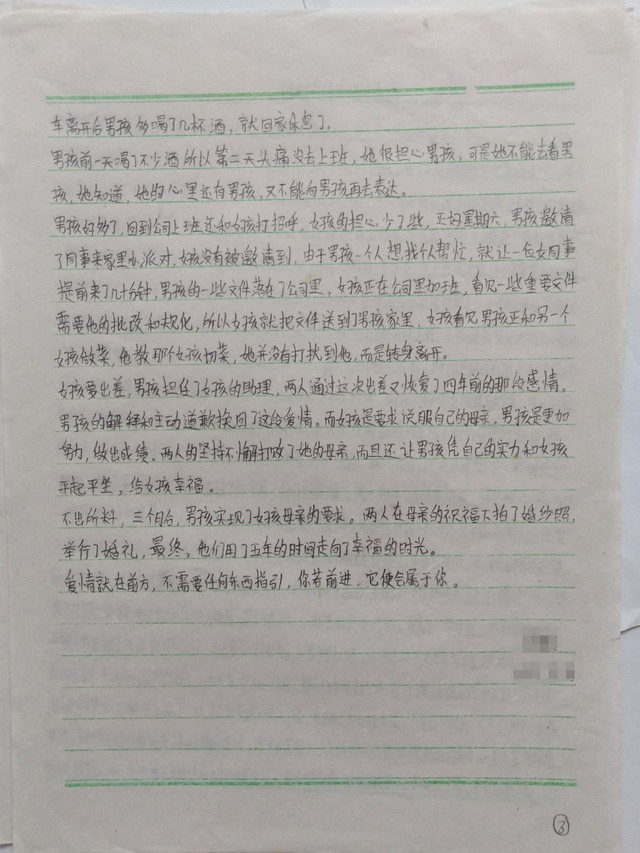 车离开后男孩多喝了几杯酒，就回家休息了。
男孩前一天喝了不少酒所以第二天头痛没去上班，她很担心男孩，可是她不能去看男
孩，她知道，她的心里还有男孩，又不能向男孩再去表达。
男孩好多了，回到公司上班还和女孩打招呼，女孩的担心少了些，正好星期六，男孩邀请
了同事来家里办派对，女孩没有被邀请到，由于男孩一个人想找个人帮忙，就让一位女同事
提前来了几十分钟，男孩的一些文件落在了公司里，女孩正在公司里加班，看见一些重要文件
需要他的批改和规化，所以女孩就把文件送到了男孩家里，女孩看见男孩正和另一个
女孩做菜，他教那个女孩切菜，她并没有打扰到他，而是转身离开。
女孩要出差，男孩担任了女孩的助理，两人通过这次出差又恢复了四年前的那份感情。
男孩的解释和主动道歉挽回了这段爱情。而女孩是要求说服自己的母亲，男孩是更加
努力，做出成绩。两人的坚持不懈打败了她的母亲，而且还让男孩凭自己的实力和女孩
平起平坐，给女孩幸福。
不出所料，三个月后，男孩实现了女孩母亲的要求。两人在母亲的祝福下拍了婚纱照，
举行了婚礼，最终，他们用了五年的时间走向了幸福的时光。
爱情就在前方，不需要任何东西指引，你若前进，它便会属于你。
③